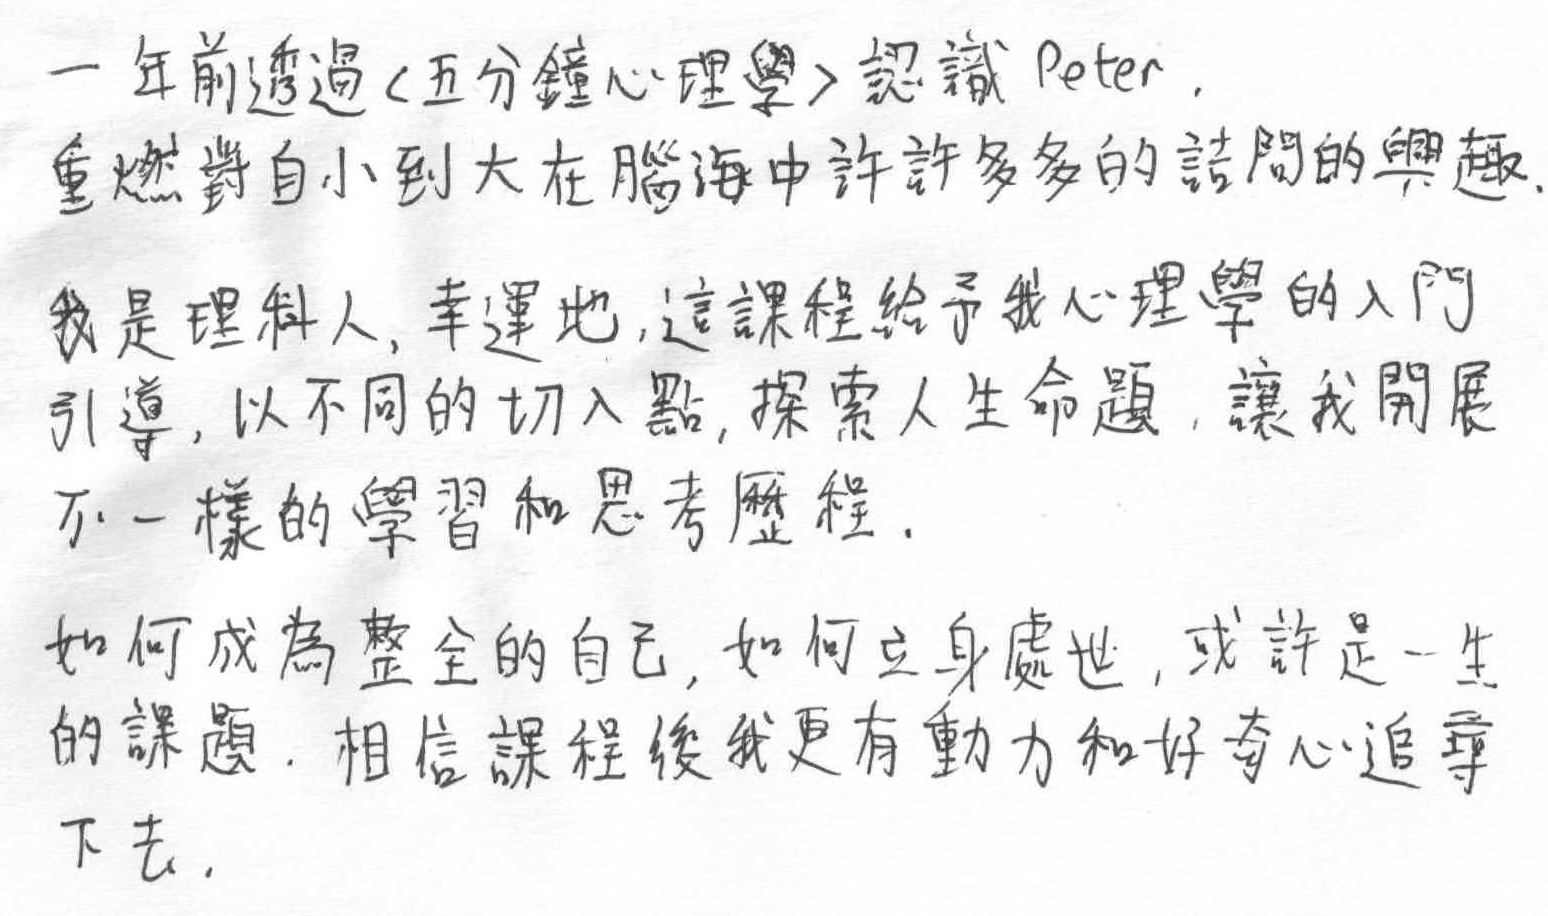 一年前透過<五分鐘心理學>認識 Peter.
重燃對自小到大在腦海中許許多多的詰問的興趣.
我是理科人, 幸運地, 這課程給予我心理學的入門
引導, 以不同的切入點, 探索人生命題, 讓我開展
不一樣的學習和思考歷程.
如何成為整全的自己, 如何立身處世, 或許是一生
的課題. 相信課程後我更有動力和好奇心追尋
下去.